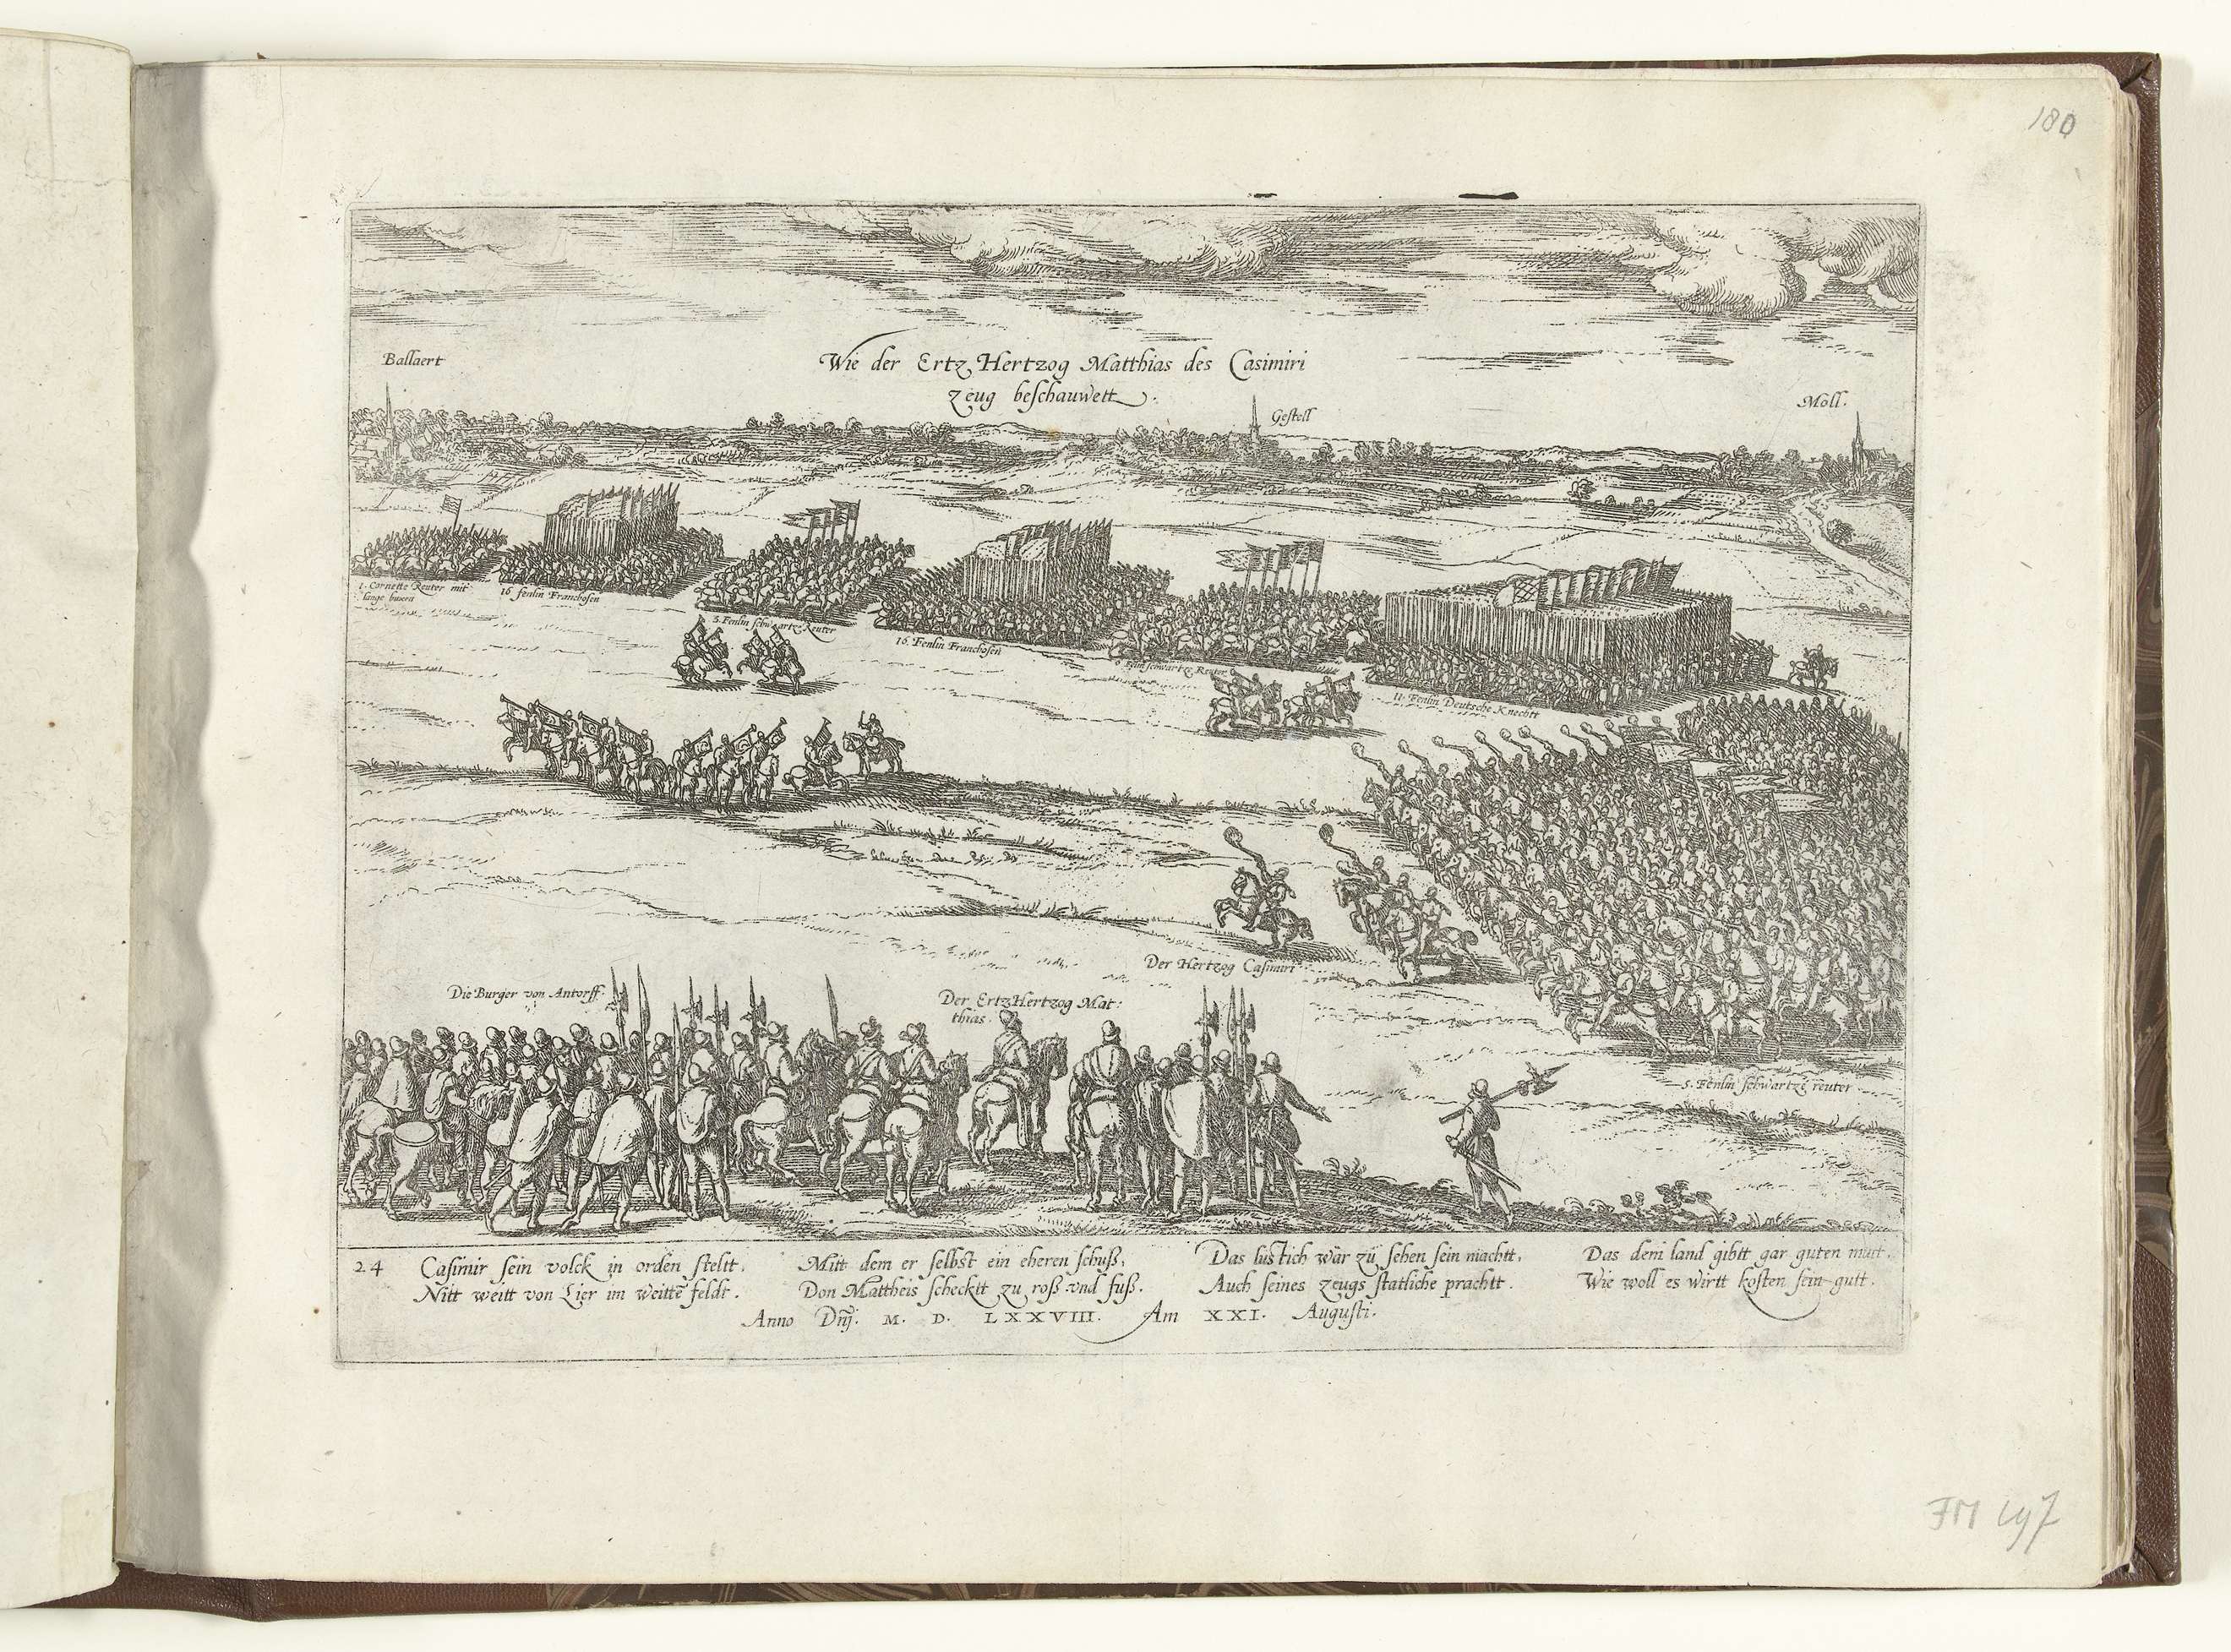 180
Ballaert
Wie der Ertz Hertzog Matthias des Casimiri
zeug beschauwett.
Gestell
Moll.
1. Cornette Reuter mit
lange buxen
16 fenlin Franchosen
3. Fenlin schwartze Reuter
16. Fenlin Franchosen
Fenlin schwartze Reuter
11. Fenlin Deutsche Knechtt
Der Hertzog Casimiri
Die Burger von Antorff.
Der ErtzHertzog Mat:
thias.
5. Fenlin schwartze reuter
24 Casimir sein volck in orden steltt. Mitt dem er selbst ein eheren schuß, Das lustich wär zü sehen sein machtt, Das dem land gibtt gar guten mutt.
Nitt weitt von Lier im weittē feldt. Don Mattheis scheckitt zu roß vnd fuß. Auch seines zeugs statliche prachtt. Wie woll es wirtt kosten sein gutt.
Anno Dnj. M. D. LXXVIII. Am XXI. Augusti.
FM